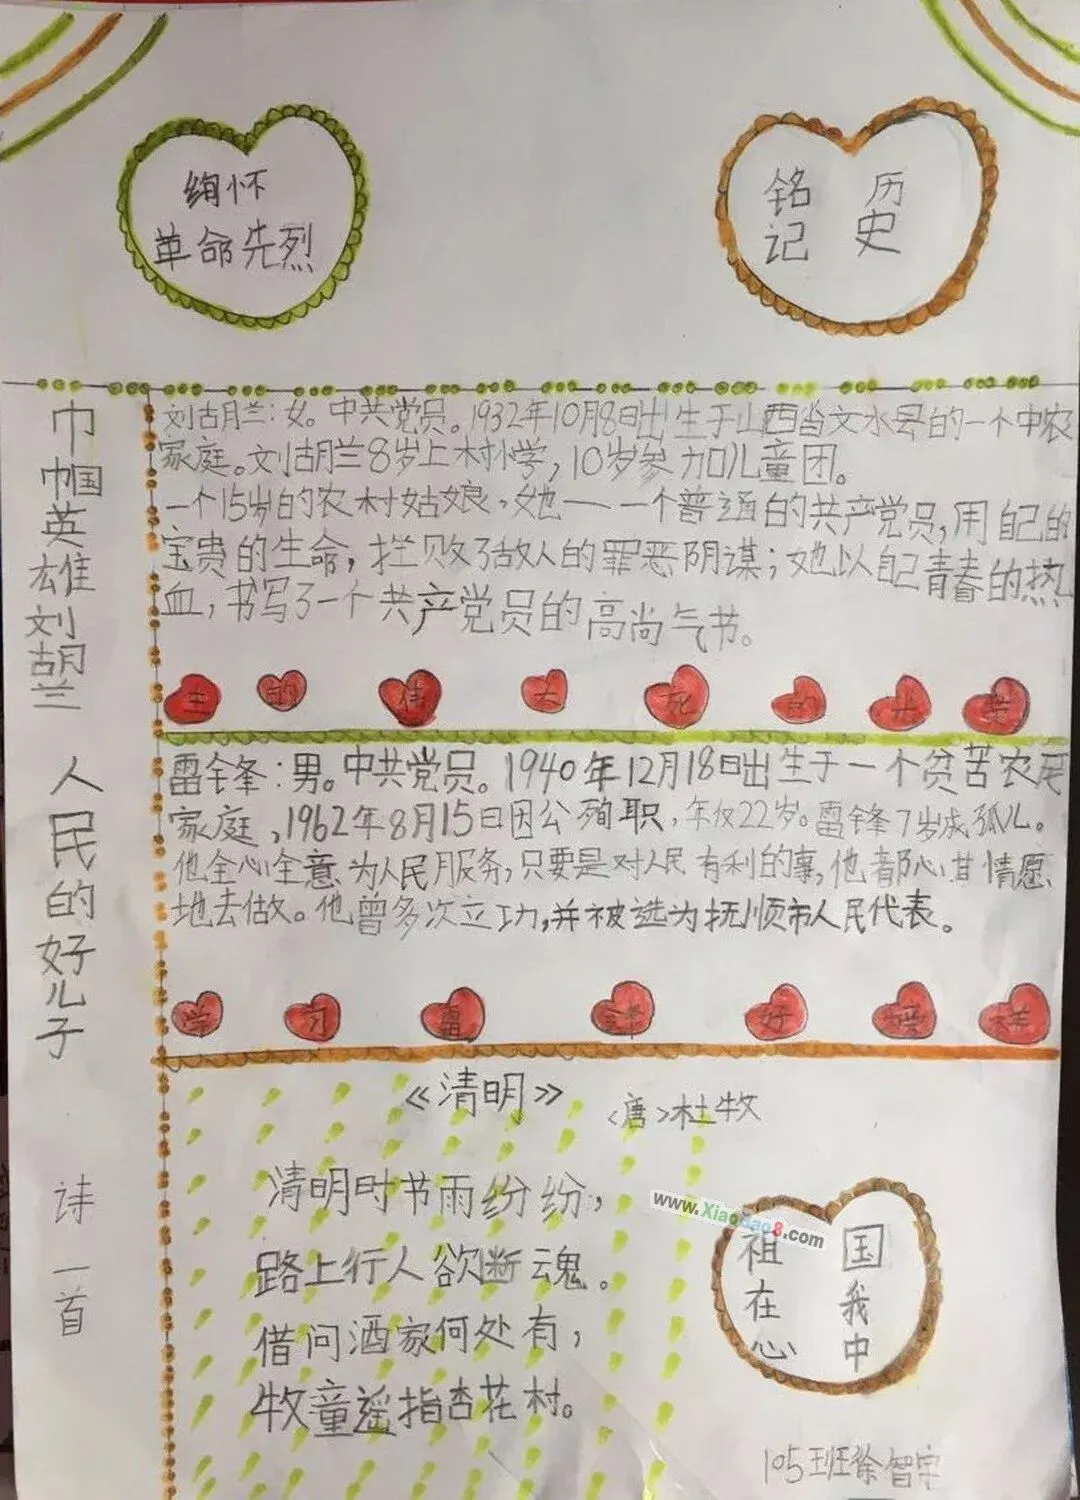 缅怀
革命先烈
铭记
历史
巾帼英雄刘胡兰
刘胡兰:女。中共党员。1932年10月8日出生于山西省文水县的一个中农
家庭。刘胡兰8岁上村小学,10岁参加儿童团。
一个15岁的农村姑娘,她——一个普通的共产党员,用自己的
宝贵的生命,拦败了敌人的罪恶阴谋;她以自己青春的热
血,书写了一个共产党员的高尚气节。
生的伟大死的光荣
人民的好儿子
雷锋:男。中共党员。1940年12月18日出生于一个贫苦农民
家庭,1962年8月15日因公殉职,年仅22岁。雷锋7岁成孤儿。
他全心全意为人民服务,只要是对人民有利的事,他都心甘情愿
地去做。他曾多次立功,并被选为抚顺市人民代表。
学习雷锋好榜样
诗一首
《清明》
<唐>杜牧
清明时节雨纷纷,
路上行人欲断魂。
借问酒家何处有,
牧童遥指杏花村。
www.XiaoBao8.com
祖国
在我
心中
105班徐智宇